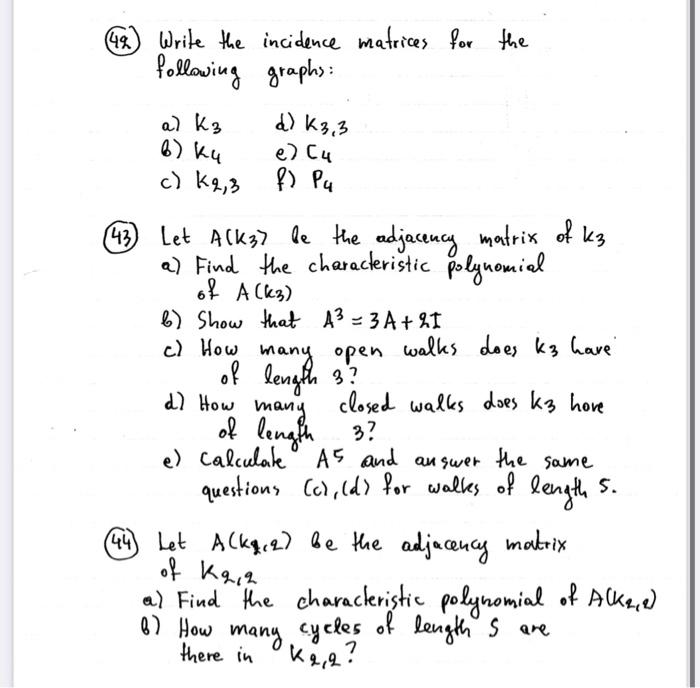 42) Write the incidence matrices for the
following graphs:
a) K3 d) K3,3
b) K4 e) C4
c) K2,3 f) P4
43) Let A(K3) be the adjacency matrix of K3
a) Find the characteristic polynomial
of A(K3)
b) Show that A³ = 3A + 2I
c) How many open walks does K3 have
of length 3?
d) How many closed walks does K3 have
of length 3?
e) Calculate A⁵ and answer the same
questions (c), (d) for walks of length 5.
44) Let A(K2,2) be the adjacency matrix
of K2,2
a) Find the characteristic polynomial of A(K2,2)
b) How many cycles of length 5 are
there in K2,2?